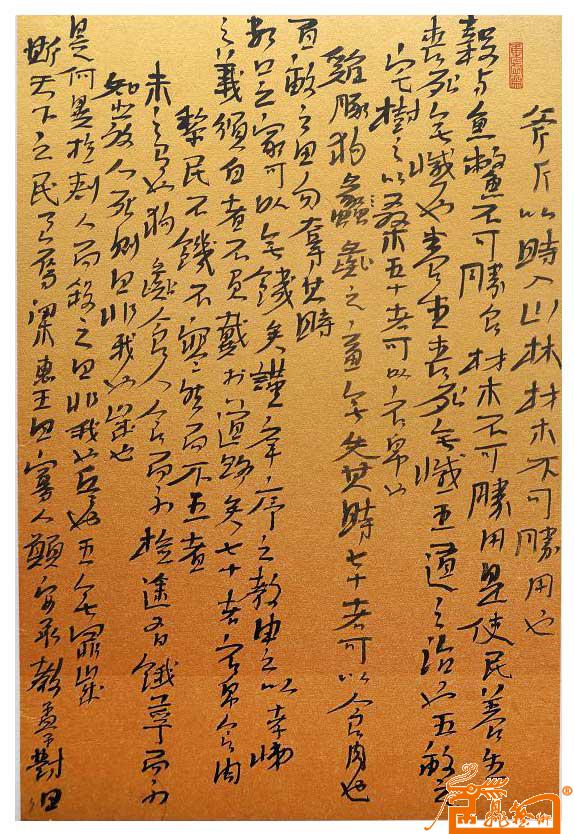 斧斤以時入山林材木不可勝用也
穀与魚鱉不可勝食材木不可勝用是使民養生
喪死無憾也養生喪死無憾王道之始也五畝之
宅樹之以桑五十者可以衣帛也
雞豚狗彘之畜無失其時七十者可以食肉也
百畝之田勿奪其時
數口之家可以無饑矣謹庠序之教申之以孝悌
之義頒白者不負戴於道路矣七十者衣帛食肉
黎民不饑不寒然而不王者
未之有也狗彘食人食而不檢途有餓莩而不
知發人死則曰非我也歲也
是何異於刺人而殺之曰非我也兵也王無罪歲
斯天下之民至焉梁惠王曰寡人願安承教孟對曰